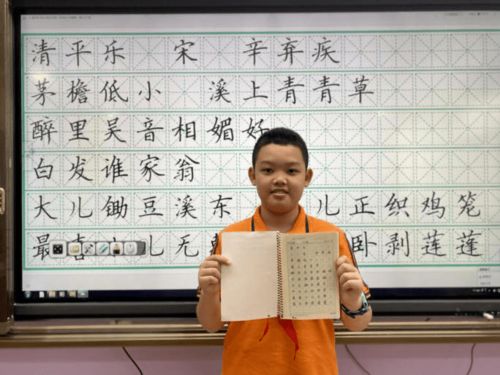 清平乐 宋 辛弃疾
茅檐低小 溪上青青草
醉里吴音相媚好
白发谁家翁
大儿锄豆溪东 儿正织鸡笼
最喜 儿无 卧剥莲莲